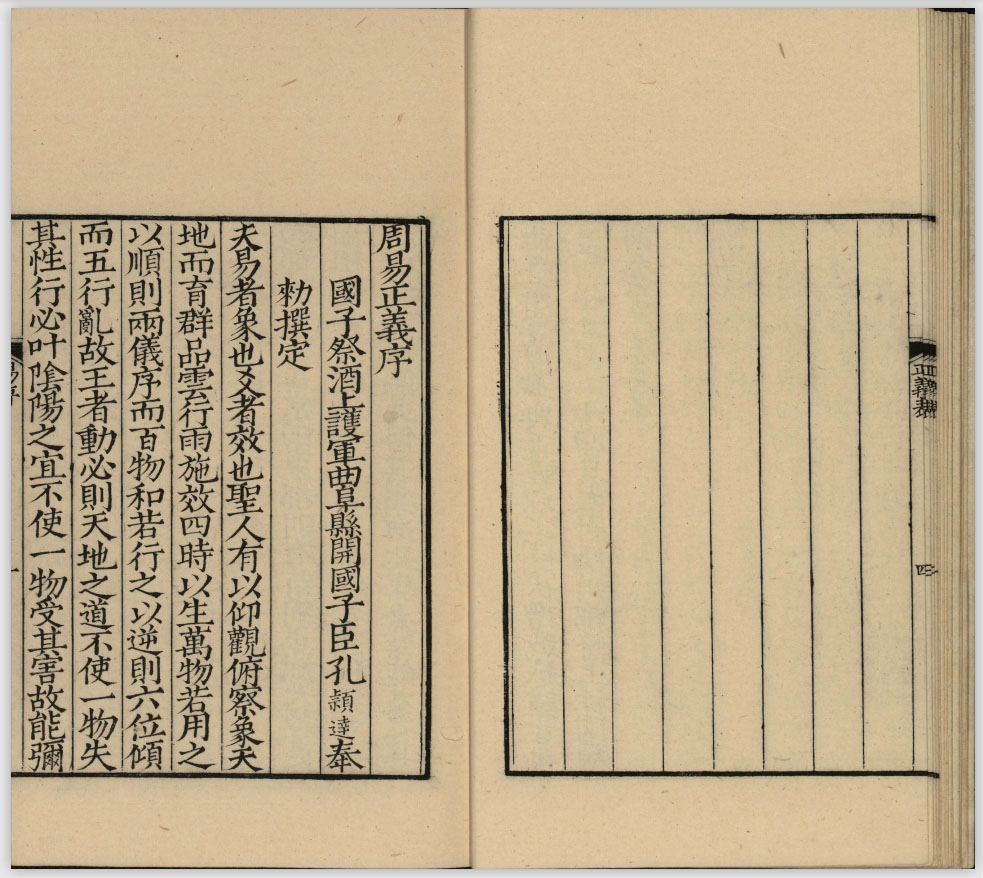 周易正義序
國子祭酒上護軍曲阜縣開國子臣孔穎達奉
勑撰定
夫易者象也爻者效也聖人有以仰觀俯察象天
地而育群品雲行雨施效四時以生萬物若用之
以順則兩儀序而百物和若行之以逆則六位傾
而五行亂故王者動必則天地之道不使一物失
其性行必叶陰陽之宜不使一物受其害故能彌